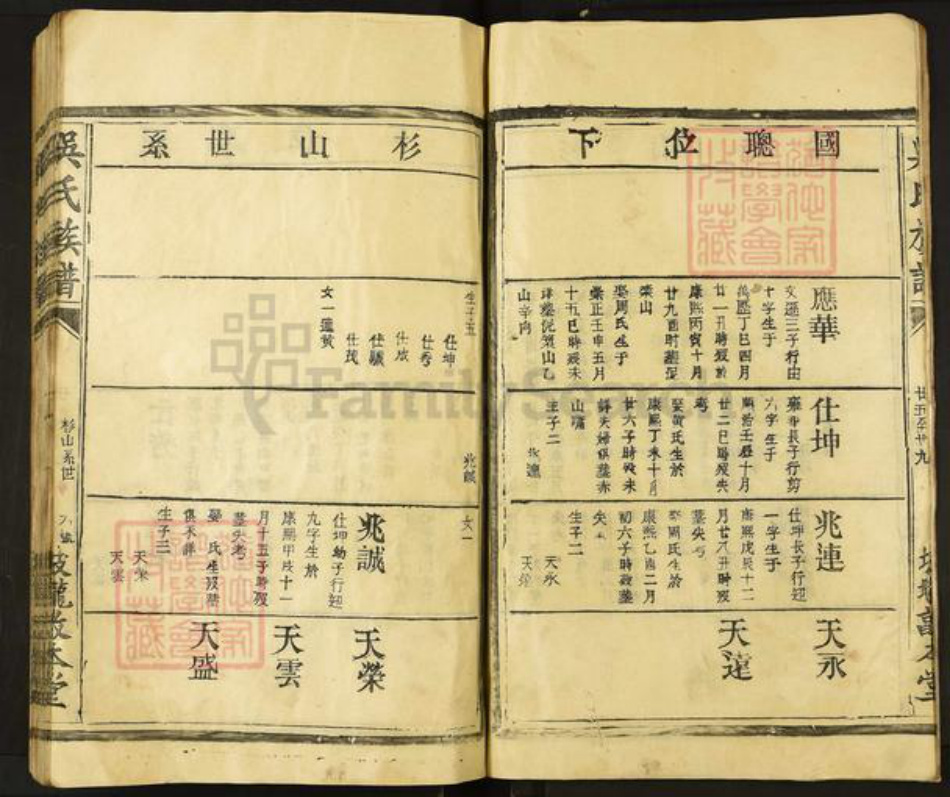 國聰位下
應華
文遜三子行由
十字生于
萬歷丁巳四月
廿一丑時歿於
康熙丙寅十月
廿九酉時葬梨
榮山
娶周氏生于
崇正壬申五月
十五巳時歿未
詳葬倪策山乙
山辛向
仕坤
應華長子行剪
六字生于
順治壬辰十月
廿二巳時歿失
考
娶黃氏生於
康熙丁未十月
廿六子時歿未
詳夫婦俱葬赤
山嘴
生子二
兆連
兆連
仕坤長子行迎
一字生于
康熙戊辰十二
月廿八丑時歿
葬失考
娶周氏生於
康熙乙酉二月
初六子時歿葬
失
生子二
天永
天榮
天永
天遠
吳氏族譜
廿五至廿九
杉山世系
生子五
仕坤
仕秀
仕成
仕驥
仕茂
女一適黃
兆誠
女一
兆誠
仕坤幼子行迎
九字生於
康熙甲戌十一
月十五子時歿
葬失考
娶 氏生歿葬
俱未詳
生子二
天榮
天雲
天榮
天雲
天盛
吳氏族譜
杉山系世
FamilySearch